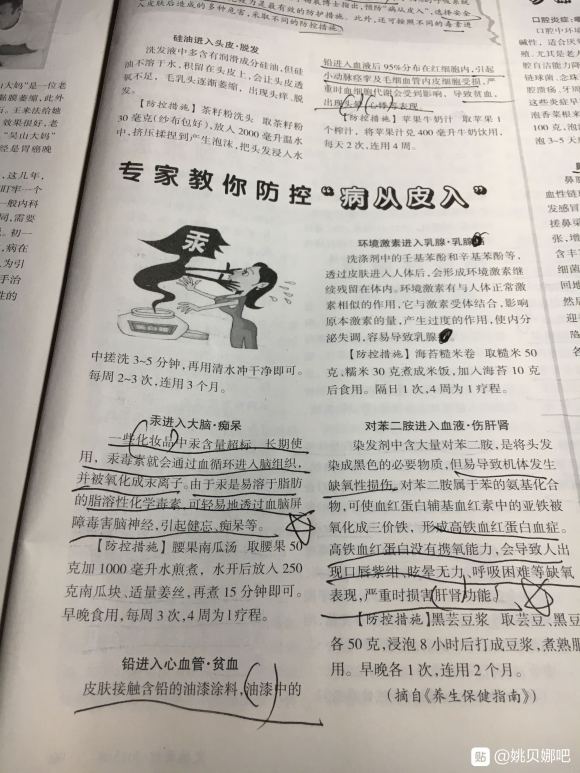 山大妈"是一位老
黏膜萎缩,此外
。王来法给她
效果很好,老
"吴山大妈"
经是胃癌晚
,这几年,
盯牢一个
一般内科
同,需要
。初一
,病在
为引
手治
性的
入皮肤后造成的多种危害,采取不同的防控措施。
博士指出,预防"病从皮入",选择安全
此外,还可按照不同的毒素进
硅油进入头皮·脱发
洗发液中多含有润滑成分硅油,但硅
油不溶于水,积留在头皮上,会让头皮透
氧不足,毛乳头逐渐萎缩,出现头痒、脱
发。
【防控措施】茶籽粉洗头 取茶籽粉
30 毫克(纱布包好),放入 2000 毫升温水
中,挤压揉捏到产生泡沫,把头发浸入水
铅进入血液后 95%分布在红细胞内,引起
小动脉痉挛及毛细血管内皮细胞受损,严
重时血细胞代谢会受到影响,导致贫血,
出现头晕、心悸等表现。
【防控措施】苹果牛奶汁 取苹果 1
个榨汁,将苹果汁兑 400 毫升牛奶饮用,
每天 2 次,连用 4 周。
专家教你防控"病从皮入"
汞
中搓洗 3~5 分钟,再用清水冲干净即可。
每周 2~3 次,连用 3 个月。
汞进入大脑·痴呆
一些化妆品中汞含量超标,长期使
用,汞毒素就会通过血循环进入脑组织,
并被氧化成汞离子。由于汞是易溶于脂肪
的脂溶性化学毒素,可轻易地透过血脑屏
障毒害脑神经,引起健忘、痴呆等。
【防控措施】腰果南瓜汤 取腰果 50
克加 1000 毫升水煎煮,水开后放入 250
克南瓜块、适量姜丝,再煮 15 分钟即可。
早晚食用,每周 3 次,4 周为 1 疗程。
铅进入心血管·贫血
皮肤接触含铅的油漆涂料,油漆中的
环境激素进入乳腺·乳腺
洗涤剂中的壬基苯酚和辛基苯酚等,
透过皮肤进入人体后,会形成环境激素继
续残留在体内。环境激素有与人体正常激
素相似的作用,它与激素受体结合,影响
原本激素的量,产生过度的作用,使内分
泌失调,容易导致乳腺
【防控措施】海苔糙米卷 取糙米 50
克、糯米 30 克煮成米饭,加入海苔 10 克
后食用。隔日 1 次,4 周为 1 疗程。
对苯二胺进入血液·伤肝肾
染发剂中含大量对苯二胺,是将头发
染成黑色的必要物质,但易导致机体发生
缺氧性损伤。对苯二胺属于苯的氨基化合
物,可使血红蛋白辅基血红素中的亚铁被
氧化成三价铁,形成高铁血红蛋白血症。
高铁血红蛋白没有携氧能力,会导致人出
现口唇紫绀、眩晕无力、呼吸困难等缺氧
表现,严重时损害肝肾功能。
【防控措施】黑芸豆浆 取芸豆、黑豆
各 50 克,浸泡 8 小时后打成豆浆,煮熟服
用。早晚各 1 次,连用 2 个月。
(摘自《养生保健指南》)
口腔炎症:
口腔中环境
碱性,适合厌
尤其是老人
腔自洁能力降
链球菌、念珠
腔溃疡、牙周
这些炎症早
泡香菜根来
100 克,泡
泡 3~5 天
鼻腔
血性链
发感冒
搓鼻梁
张,增
细菌
含丰
回地
然后
迎
贴 @姚贝娜吧